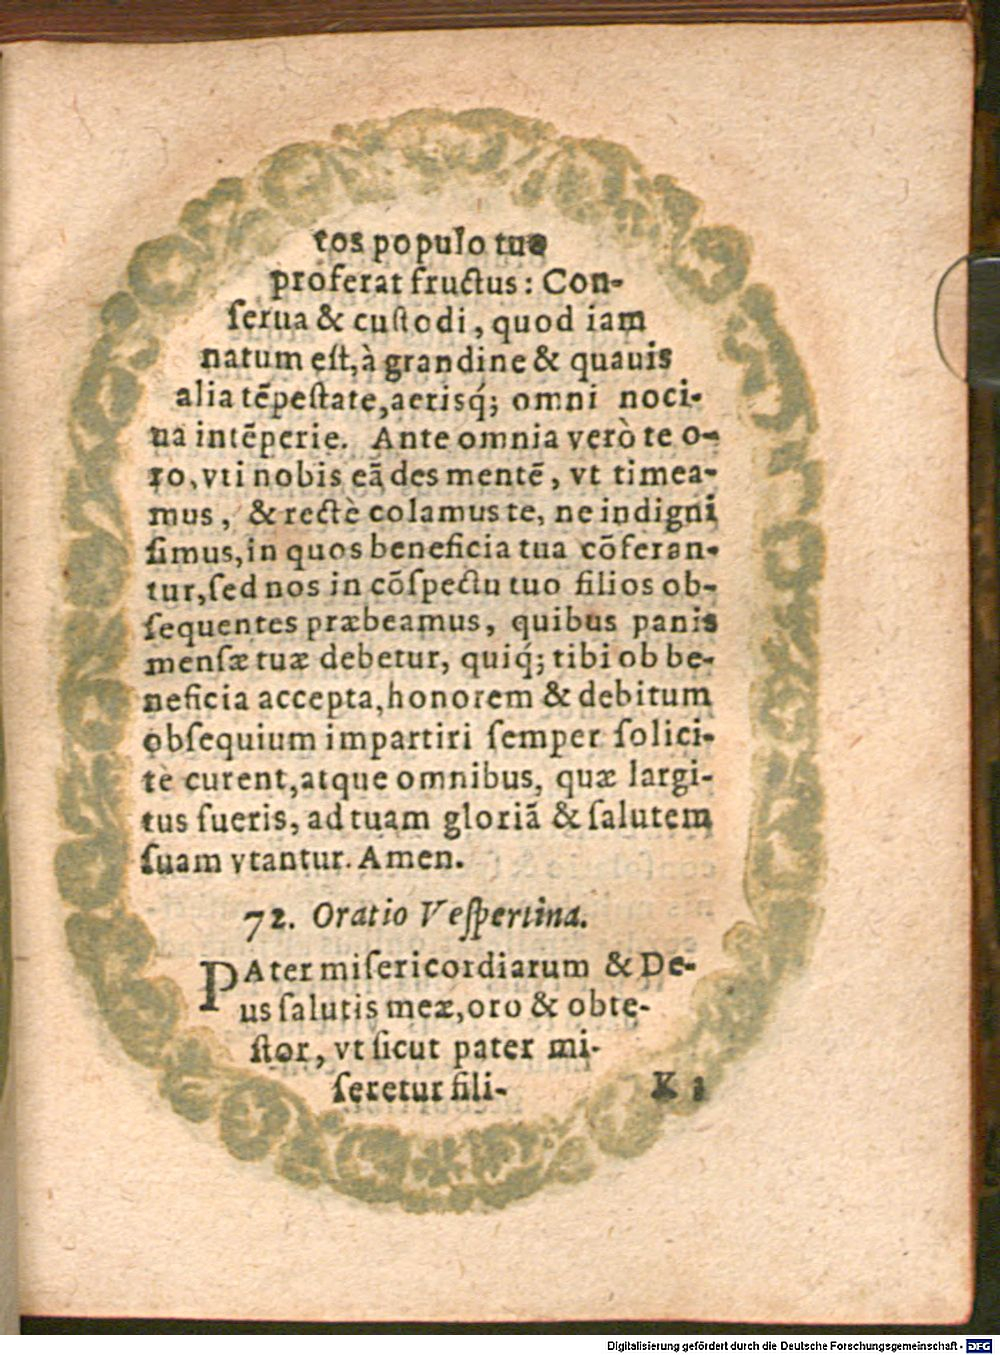 tos populo tuo
proferat fructus : Con-
ſerua & cuſtodi, quod iam
natum eſt, à grandine & quauis
alia tẽpeſtate, aerisq́; omni noci-
ua intẽperie. Ante omnia verò te o-
ro, vti nobis eã des mentẽ, vt timea-
mus, & rectè colamus te, ne indigni
ſimus, in quos beneficia tua cõferan-
tur, ſed nos in cõſpectu tuo filios ob-
ſequentes præbeamus, quibus panis
menſæ tuæ debetur, quiq́; tibi ob be-
neficia accepta, honorem & debitum
obſequium impartiri ſemper ſolici-
tè curent, atque omnibus, quæ largi-
tus fueris, ad tuam gloriã & ſalutem
ſuam vtantur. Amen.
72. Oratio Veſpertina.
PAter miſericordiarum & De-
us ſalutis meæ, oro & obte-
ſtor, vt ſicut pater mi-
ſeretur fili-
K 3
Digitalisierung gefördert durch die Deutsche Forschungsgemeinschaft - DFG